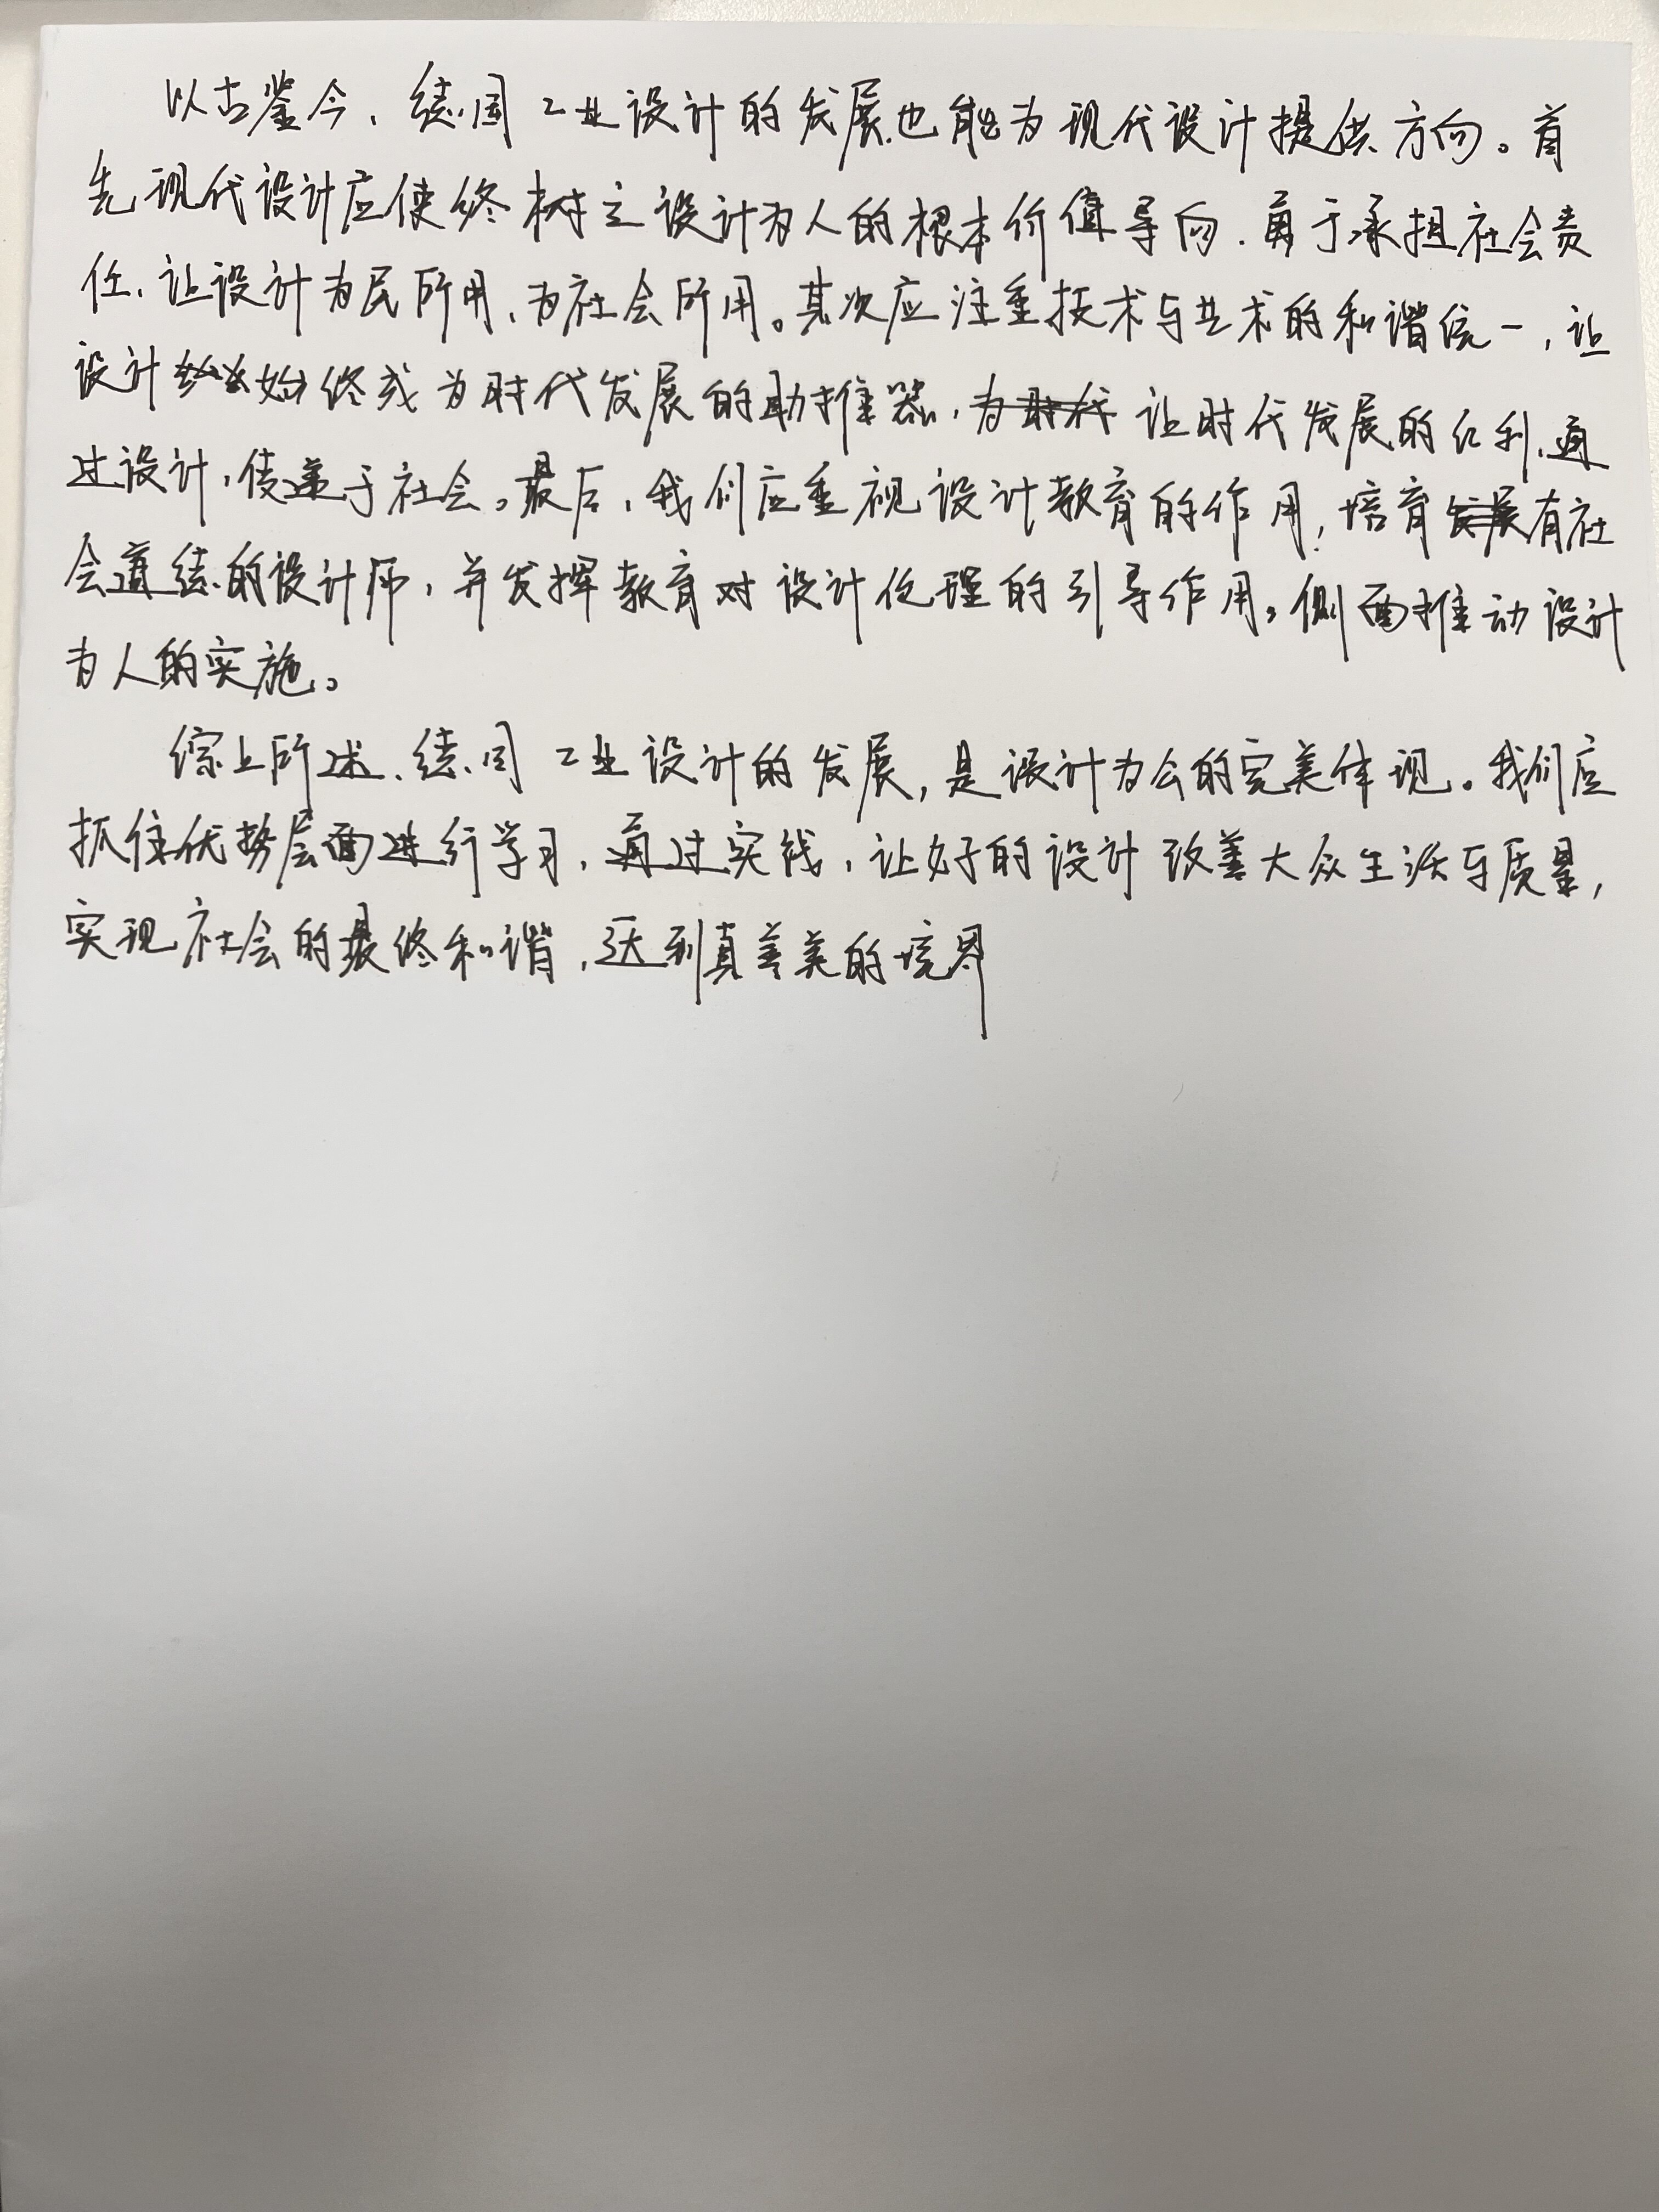 以古鉴今，德国工业设计的发展也能为现代设计提供方向。首
先现代设计应使终树立设计为人的根本价值导向，勇于承担社会责
任，让设计为民所用，为社会所用。其次应注重技术与艺术的和谐统一，让
设计始终成为时代发展的助推器，为时代让时代发展的红利，通
过设计，传递于社会。最后，我们应重视设计教育的作用，培育有社
会道德的设计师，并发挥教育对设计伦理的引导作用。侧面推动设计
为人的实施。
综上所述，德国工业设计的发展，是设计为公的完美体现。我们应
抓住优势层面进行学习，通过实践，让好的设计改善大众生活与质量，
实现社会的最终和谐，达到真善美的境界